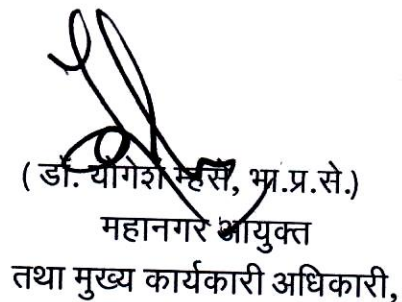 ( डॉ. योगेश म्हसे, भा.प्र.से.)
महानगर आयुक्त
तथा मुख्य कार्यकारी अधिकारी,